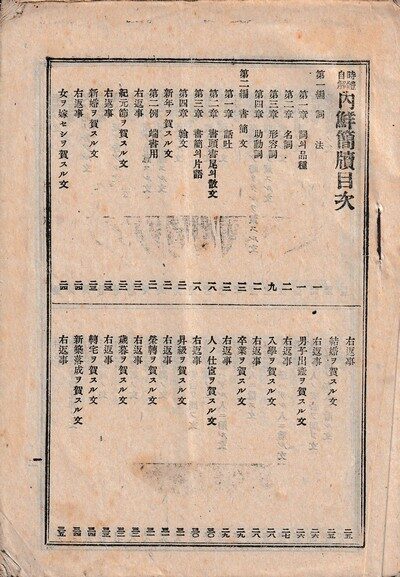 時體自解 內鮮簡牘目次
第一編 詞 法 一
第一章 詞의品種 一
第二章 名詞 二
第三章 形容詞 九
第四章 助動詞
第二編 書簡文 一三
第一章 語吐 一三
第二章 書頭書尾의散文
第三章 書簡의片語 一八
第四章 翰文
新年ヲ賀スル文
第二例 端書用
右返事
紀元節ヲ賀スル文
右返事
新婚ヲ賀スル文
右返事 二四
女ヲ嫁セシヲ賀スル文 二四
右返事 二五
結婚ヲ賀スル文 二五
右返事 二六
男子出產ヲ賀スル文 二六
右返事 二七
入學ヲ賀スル文
右返事 二八
卒業ヲ賀スル文
右返事 二九
人ノ仕官ヲ賀スル文 三〇
右返事 三〇
昇級ヲ賀スル文 三一
榮轉ヲ賀スル文
右返事
歲暮ヲ賀スル文
右返事
轉宅ヲ賀スル文
右返事
新築落成ヲ賀スル文
右返事 三五